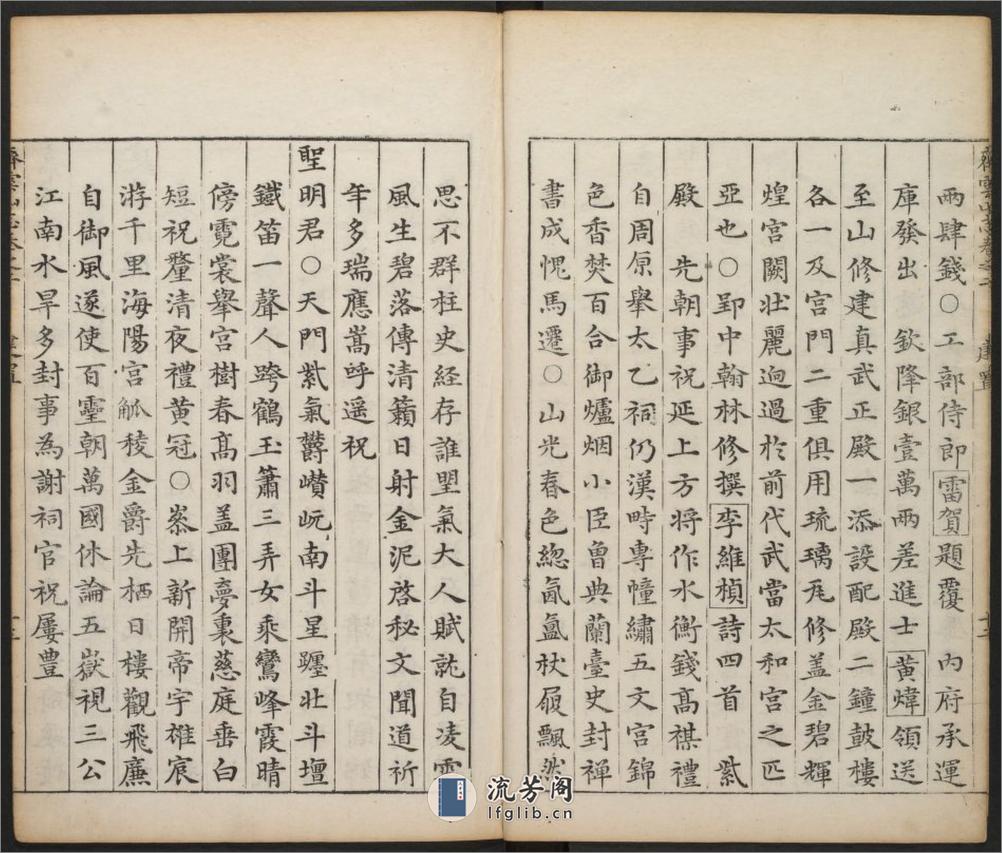 兩肆錢○工部侍郎雷賀題覆 內府承運
庫發出 欽降銀壹萬兩差進士黃煒領送
至山修建真武正殿一添設配殿二鐘皷樓
各一及宮門二重俱用琉璃瓦修盖金碧輝
煌宮闕壯麗逈過於前代武當太和宮之匹
亞也○郢中翰林修撰李維楨詩四首 紫
殿 先朝事祝延上方將作水衡錢高禖禮
自周原舉太乙祠仍漢畤專幢繡五文宮錦
色香焚百合御爐烟小臣曾典蘭臺史封禅
書成愧馬遷○山光春色緫氤氲杖屐飄然
思不群柱史経存誰望氣大人賦就自凌雲
風生碧落傳清籟日射金泥啓秘文聞道祈
年多瑞應嵩呼遥祝
聖明君○天門紫氣欝巑岏南斗星躔壯斗壇
鐵笛一聲人跨鶴玉簫三弄女乘鸞峰霞晴
傍霓裳舉宮樹春高羽盖團夢裏慈庭垂白
短祝釐清夜禮黃冠○泰上新開帝宇雄宸
游千里海陽宮觚稜金爵先栖日樓觀飛廉
自御風遂使百靈朝萬國休論五嶽視三公
江南水旱多封事為謝祠官祝屢豊
齊雲山志卷之二 建置
流芳阁
lfglib.cn